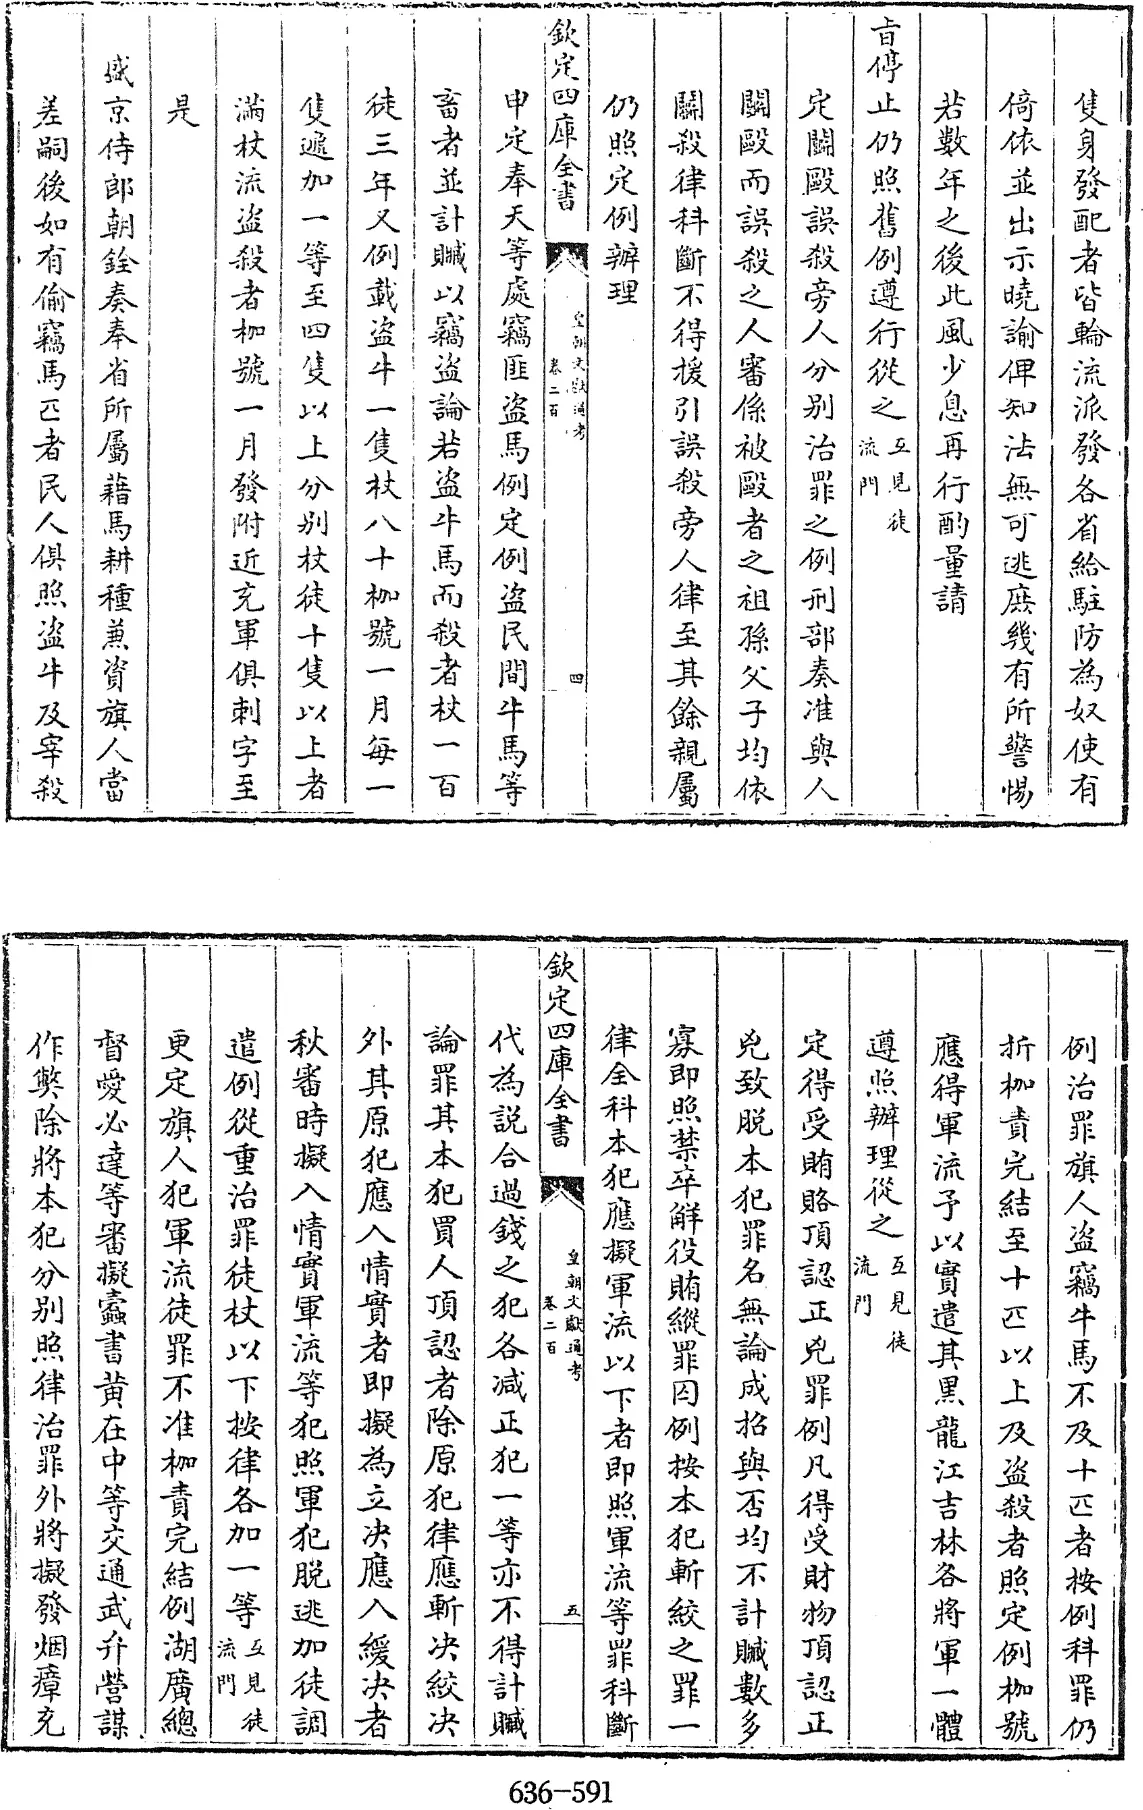 隻身發配者皆輪流派發各省給駐防為奴使有
倚依並出示曉諭俾知法無可逃庶幾有所警惕
若數年之後此風少息再行酌量請
旨停止仍照舊例遵行從之互見徒流門
定鬬毆誤殺旁人分别治罪之例刑部奏准與人
鬬毆而誤殺之人審係被毆者之祖孫父子均依
鬬殺律科斷不得援引誤殺旁人律至其餘親屬
仍照定例辦理
欽定四庫全書 皇朝文獻通考 卷二百 四
申定奉天等處竊匪盜馬例定例盜民間牛馬等
畜者並計贓以竊盜論若盜牛馬而殺者杖一百
徒三年又例載盜牛一隻杖八十枷號一月每一
隻遞加一等至四隻以上分别杖徒十隻以上者
滿杖流盜殺者枷號一月發附近充軍俱刺字至
是
盛京侍郎朝銓奏奉省所屬藉馬耕種兼資旗人當
差嗣後如有偷竊馬匹者民人俱照盜牛及宰殺
例治罪旗人盜竊牛馬不及十匹者按例科罪仍
折枷責完結至十匹以上及盜殺者照定例枷號
應得軍流予以實遣其黑龍江吉林各將軍一體
遵照辦理從之互見徒流門
定得受賄賂頂認正兇罪例凡得受財物頂認正
兇致脫本犯罪名無論成招與否均不計贓數多
寡即照禁卒解役賄縱罪囚例按本犯斬絞之罪一
律全科本犯應擬軍流以下者即照軍流等罪科斷
欽定四庫全書 皇朝文獻通考 卷二百 五
代為說合過錢之犯各減正犯一等亦不得計贓
論罪其本犯買人頂認者除原犯律應斬决絞决
外其原犯應入情實者即擬為立决應入緩决者
秋審時擬入情實軍流等犯照軍犯脫逃加徒調
遣例從重治罪徒杖以下按律各加一等互見徒流門
更定旗人犯軍流徒罪不准枷責完結例湖廣總
督愛必達等審擬蠹書黄在中等交通武弁營謀
作獘除將本犯分别照律治罪外將擬發烟瘴充
636-591